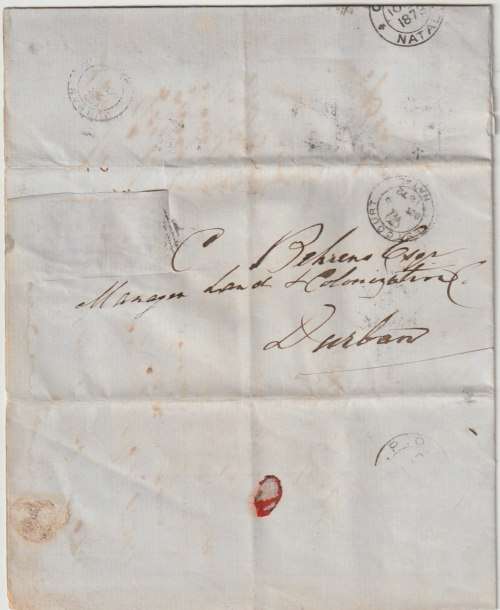 187
NATAL
COURT
C. Behrens Esqr
Manager Land & Colonization C
Durban
P. O